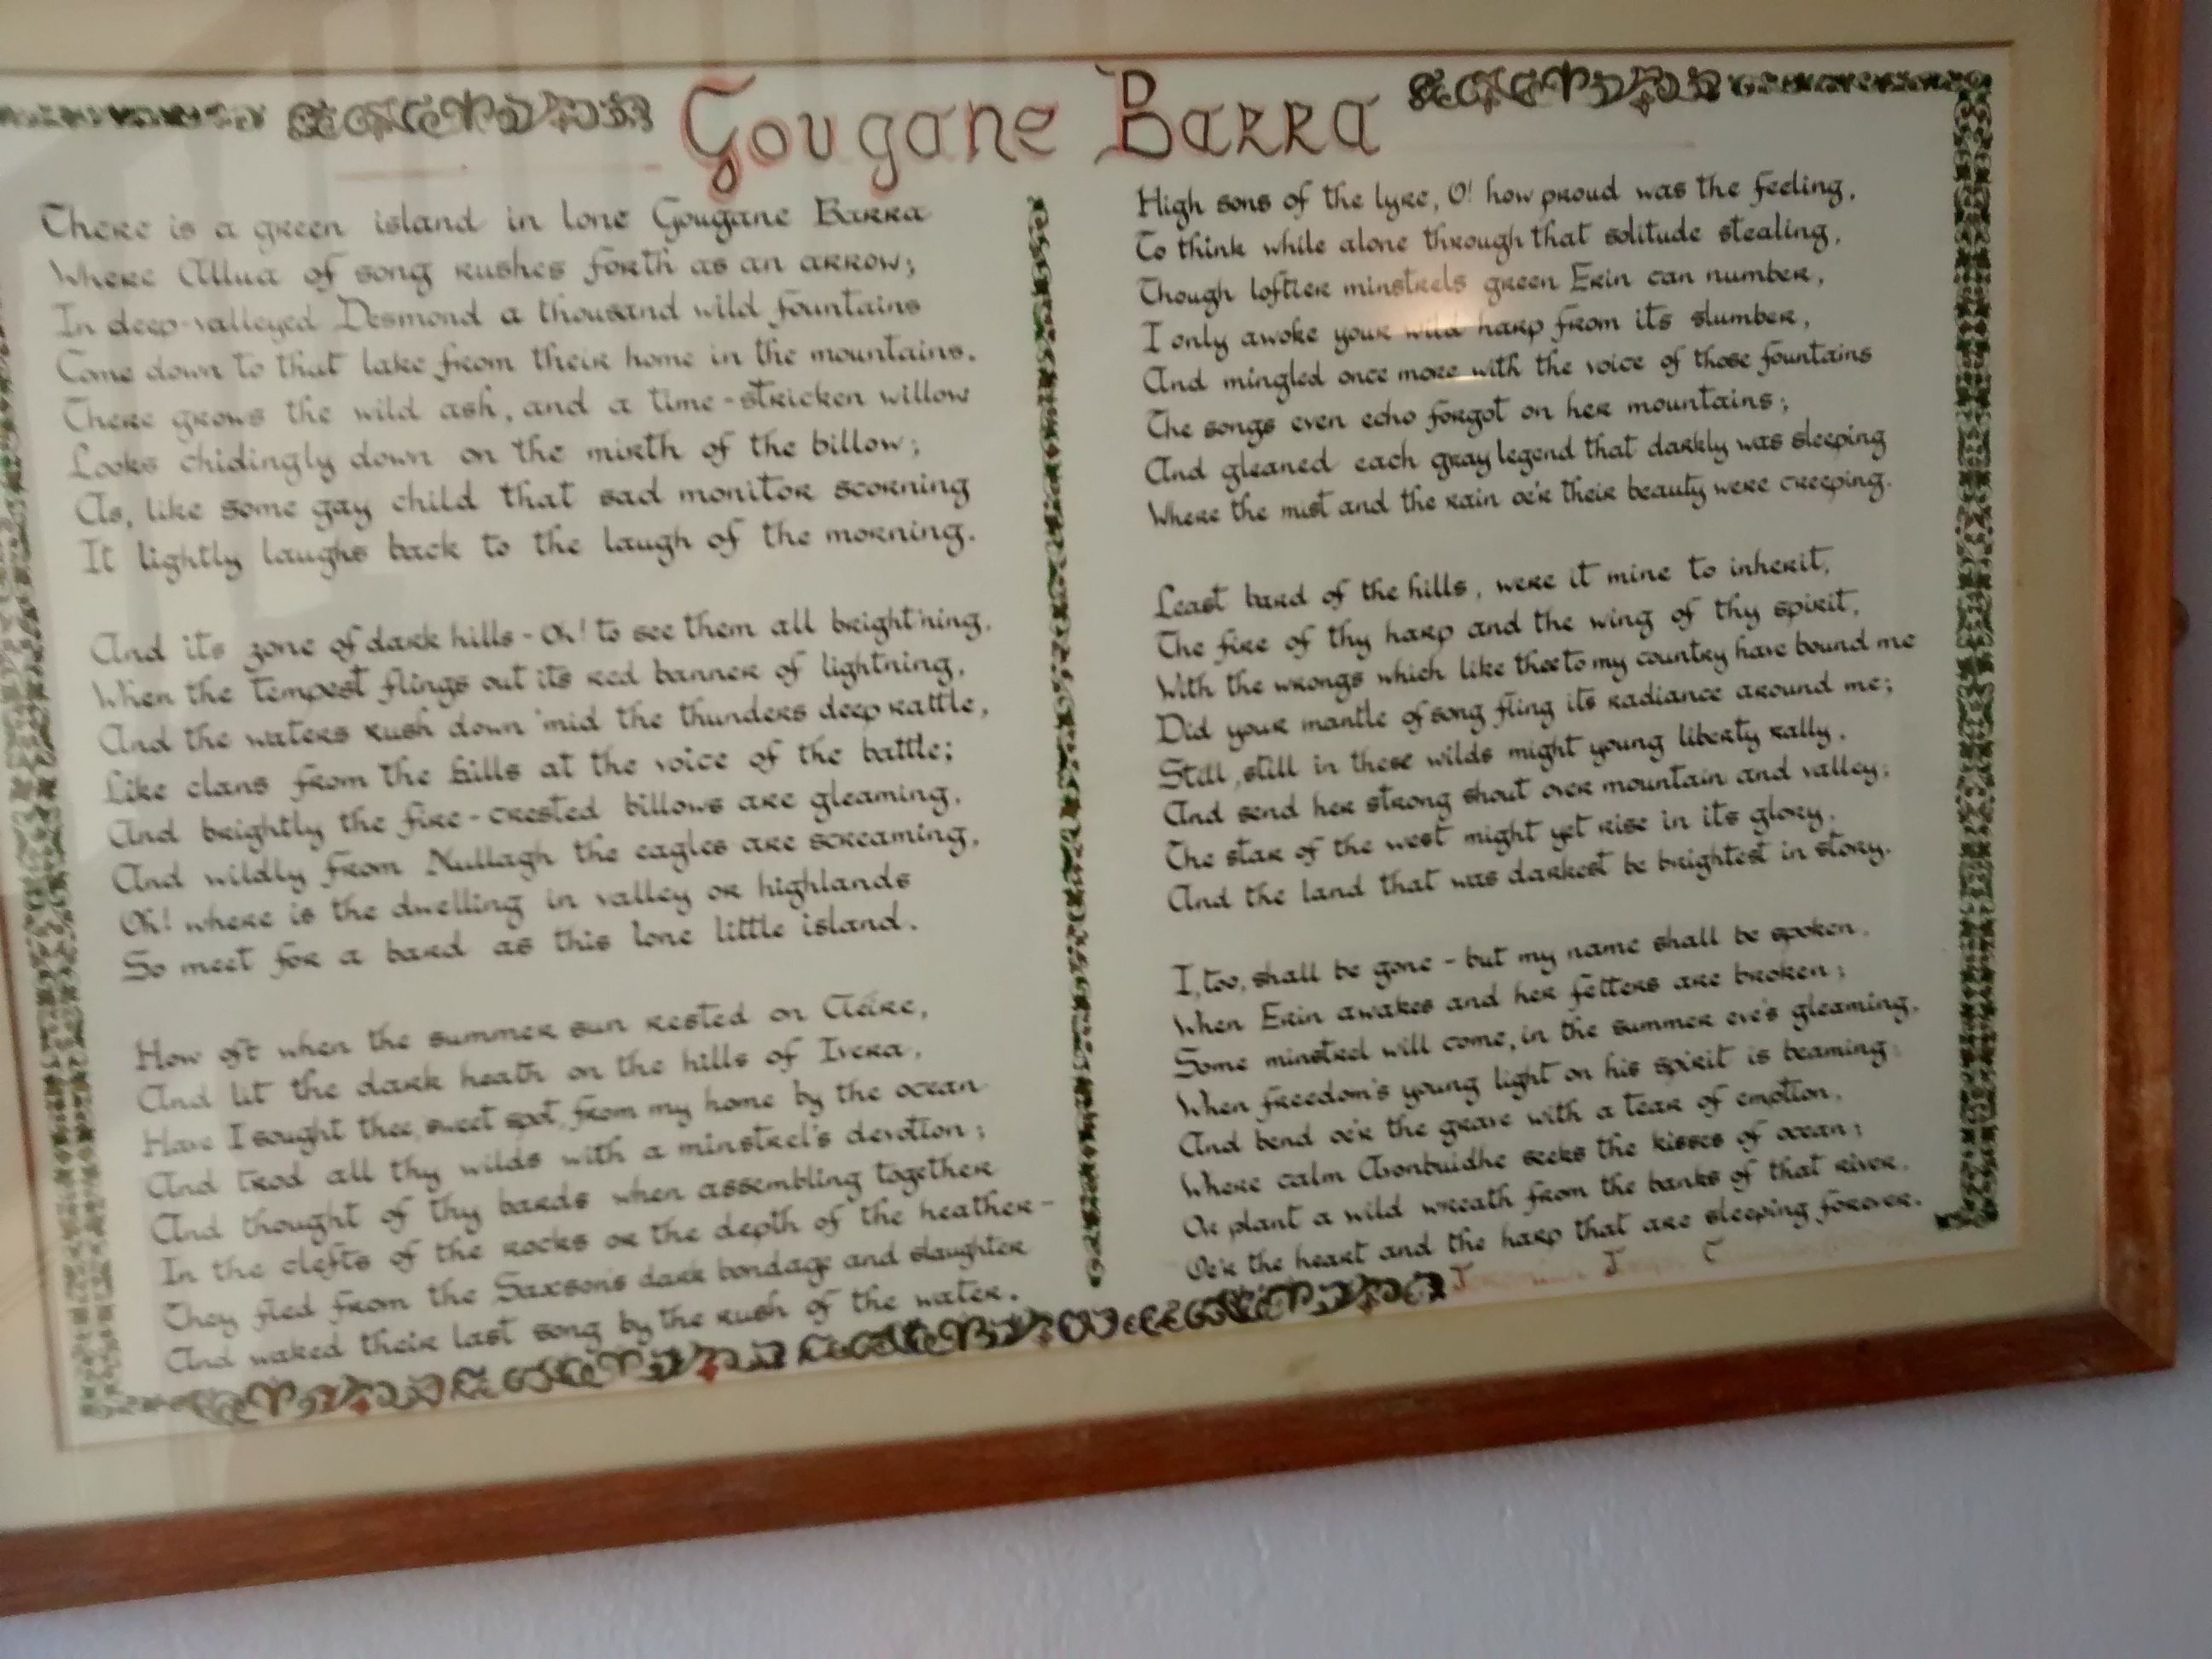 Gougane Barra
There is a green island in lone Gougane Barra
Where Allua of song rushes forth as an arrow;
In deep-valleyed Desmond a thousand wild fountains
Come down to that lake from their home in the mountains.
There grows the wild ash, and a time-stricken willow
Looks chidingly down on the mirth of the billow;
As, like some gay child that sad monitor scorning
It lightly laughs back to the laugh of the morning.
And its zone of dark hills - Oh! to see them all bright'ning,
When the tempest flings out its red banner of lightning,
And the waters rush down 'mid the thunders deep rattle,
Like clans from the hills at the voice of the battle;
And brightly the fire-crested billows are gleaming,
And wildly from Nullagh the eagles are screaming,
Oh! where is the dwelling in valley or highlands
So meet for a bard as this lone little island.
How oft when the summer sun rested on Cleire,
And lit the dark heath on the hills of Ivera,
Have I sought thee, sweet spot, from my home by the ocean
And trod all thy wilds with a minstrel's devotion;
And thought of thy bards when assembling together
In the clefts of the rocks or the depth of the heather -
They fled from the Saxson's dark bondage and slaughter
And waked their last song by the rush of the water.
High sons of the lyre, O! how proud was the feeling,
To think while alone through that solitude stealing,
Though loftier minstrels green Erin can number,
I only awoke your wild harp from its slumber,
And mingled once more with the voice of those fountains
The songs even echo forgot on her mountains;
And gleaned each gray legend that darkly was sleeping
Where the mist and the rain oe'r their beauty were creeping.
Least bard of the hills, were it mine to inherit,
The fire of thy harp and the wing of thy spirit,
With the wrongs which like thee to my country have bound me
Did your mantle of song fling its radiance around me;
Still, still in these wilds might young liberty rally,
And send her strong shout over mountain and valley;
The star of the west might yet rise in its glory,
And the land that was darkest be brightest in story.
I, too, shall be gone - but my name shall be spoken,
When Erin awakes and her fetters are broken;
Some minstrel will come, in the summer eve's gleaming,
When freedom's young light on his spirit is beaming;
And bend oe'r the grave with a tear of emotion,
Where calm Avonbuidhe seeks the kisses of ocean;
Or plant a wild wreath from the banks of that river,
Oe'r the heart and the harp that are sleeping forever.